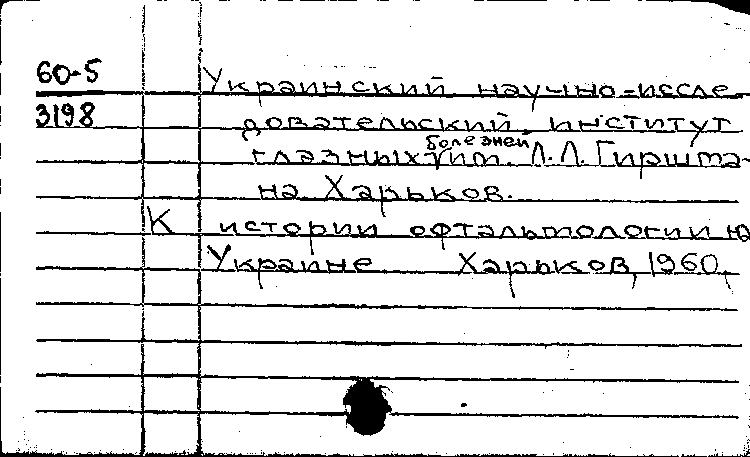 60-5
3198
Украинский научно-иссле-
довательский институт
глазных болезней им. Л.Л. Гиршма-
на Харьков.
К истории офтальмологии на
Украине Харьков, 1960.